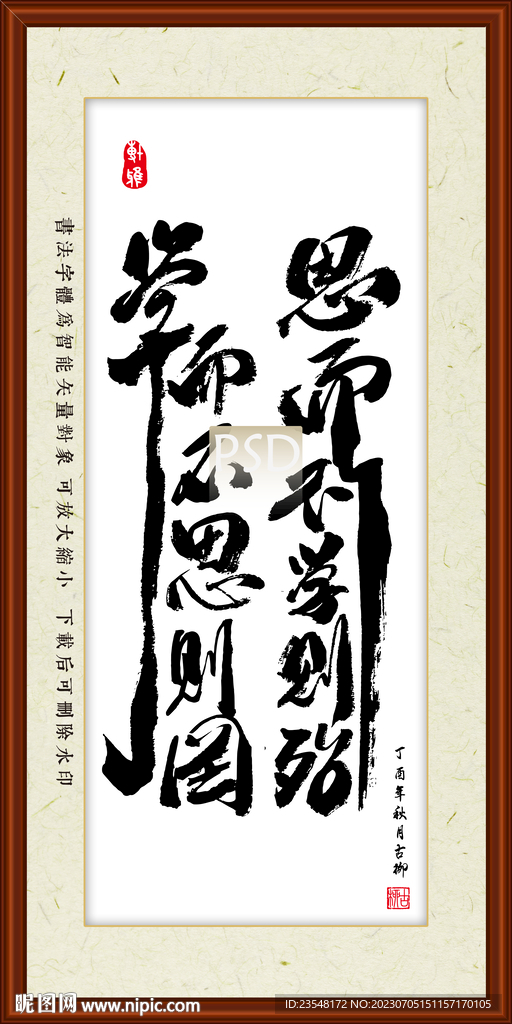 書法字體為智能矢量對象 可放大縮小 下載后可刪除水印
軒雅
学而不思则罔
思而不学则殆
PSD
丁酉年秋月古柳
昵图网 www.nipic.com
ID:23548172 NO:20230705151157170105